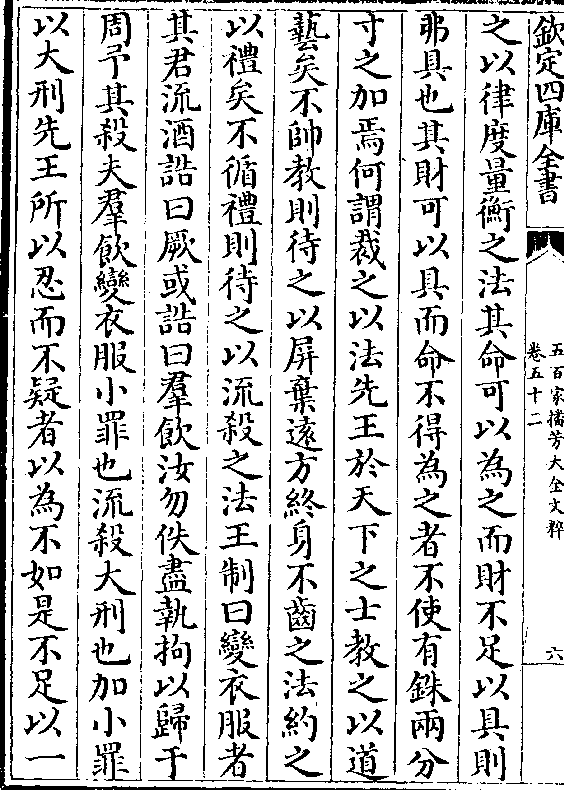 欽定四庫全書
五百家播芳大全文粹
卷五十二
六
之以律度量衡之法其命可以為之而財不足以具則
弗具也其財可以具而命不得為之者不使有銖兩分
寸之加焉何謂裁之以法先王於天下之士教之以道
藝矣不帥教則待之以屏棄遠方終身不齒之法約之
以禮矣不循禮則待之以流殺之法王制曰變衣服者
其君流酒誥曰厥或誥曰羣飲汝勿佚盡執拘以歸于
周予其殺夫羣飲變衣服小罪也流殺大刑也加小罪
以大刑先王所以忍而不疑者以為不如是不足以一